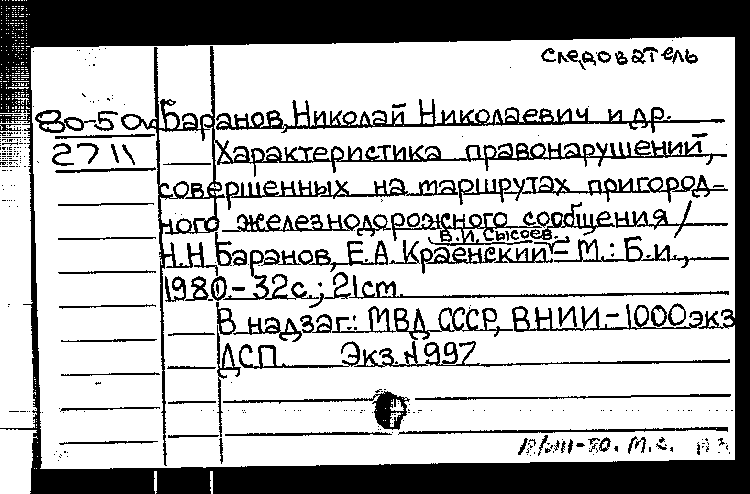 следователь
80-50м Баранов, Николай Николаевич и др.
2711 Характеристика правонарушений,
совершенных на маршрутах пригород-
ного железнодорожного сообщения /
В.И. Сысоев.
Н.Н Баранов, Е.А. Краенский – М.: Б.и.,
1980.- 32с.; 21cm.
В надзаг.: МВД СССР, ВНИИ.-1000экз
ДСП. Экз.№997
М.З.